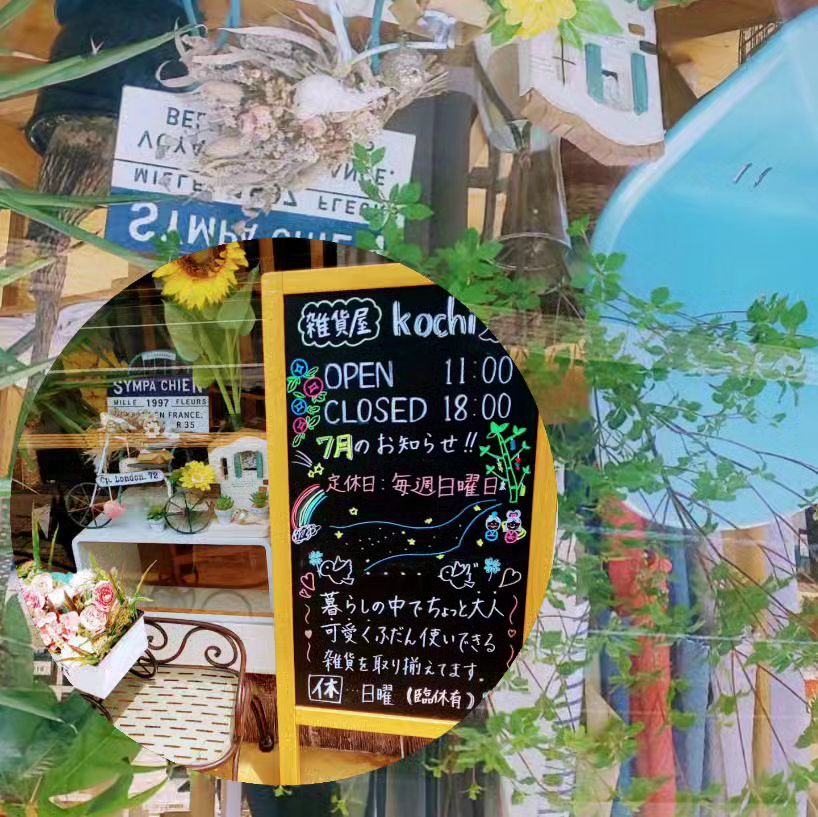 SYMPA CHIEN
MILLE 1997 FLEURS
EN FRANCE.
R 35
Cp. London. 72
雑貨屋 kochi
OPEN 11:00
CLOSED 18:00
7月のお知らせ!!
定休日:毎週日曜日
暮らしの中でちょっと大人
可愛くふだん使いできる
雑貨を取り揃えてます。
休…日曜(臨休有)